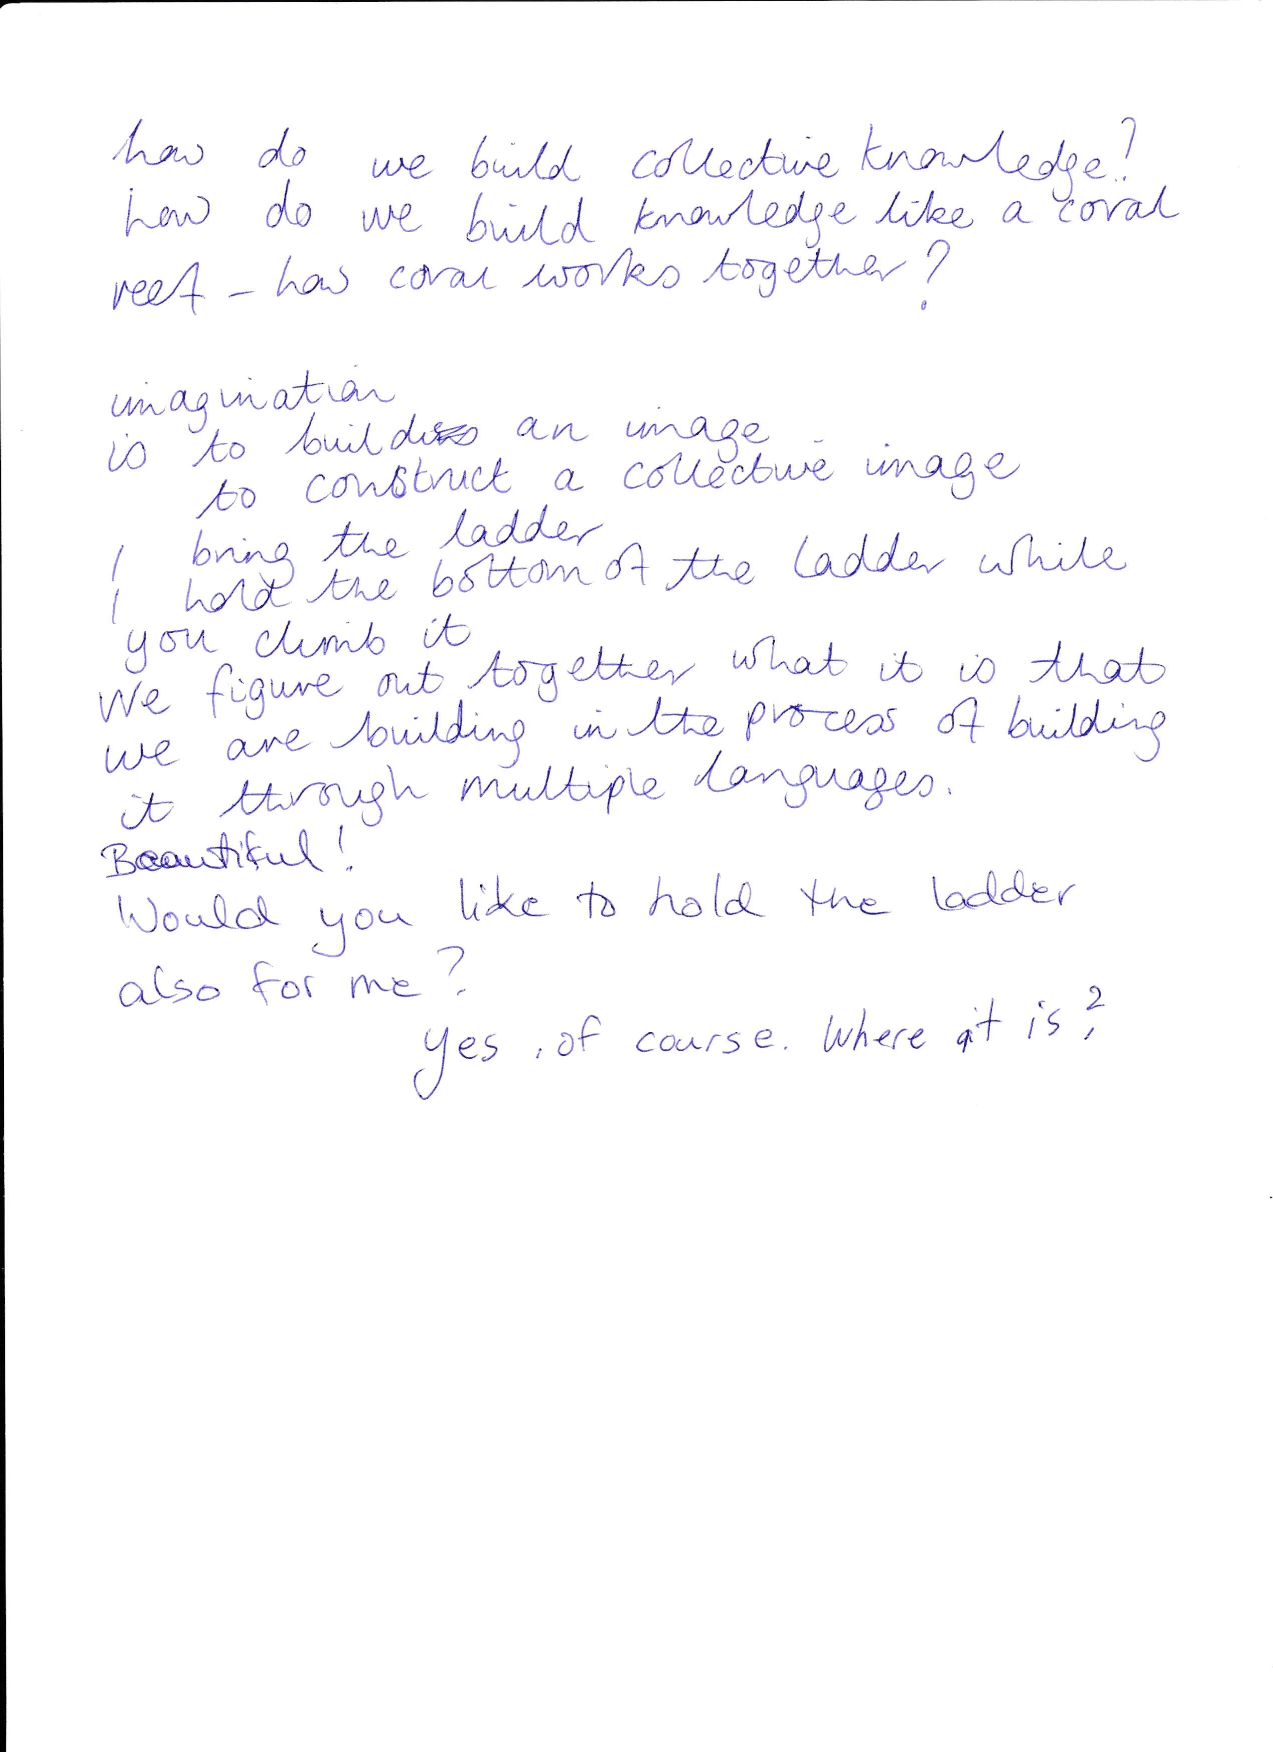 how do we build collective knowledge?
how do we build knowledge like a coral
reef - how coral works together?
imagination
is to build an image
to construct a collective image
I bring the ladder
I hold the bottom of the ladder while
you climb it
We figure out together what it is that
we are building in the process of building
it through multiple languages.
Beautiful!
Would you like to hold the ladder
also for me?
Yes, of course. Where it is?